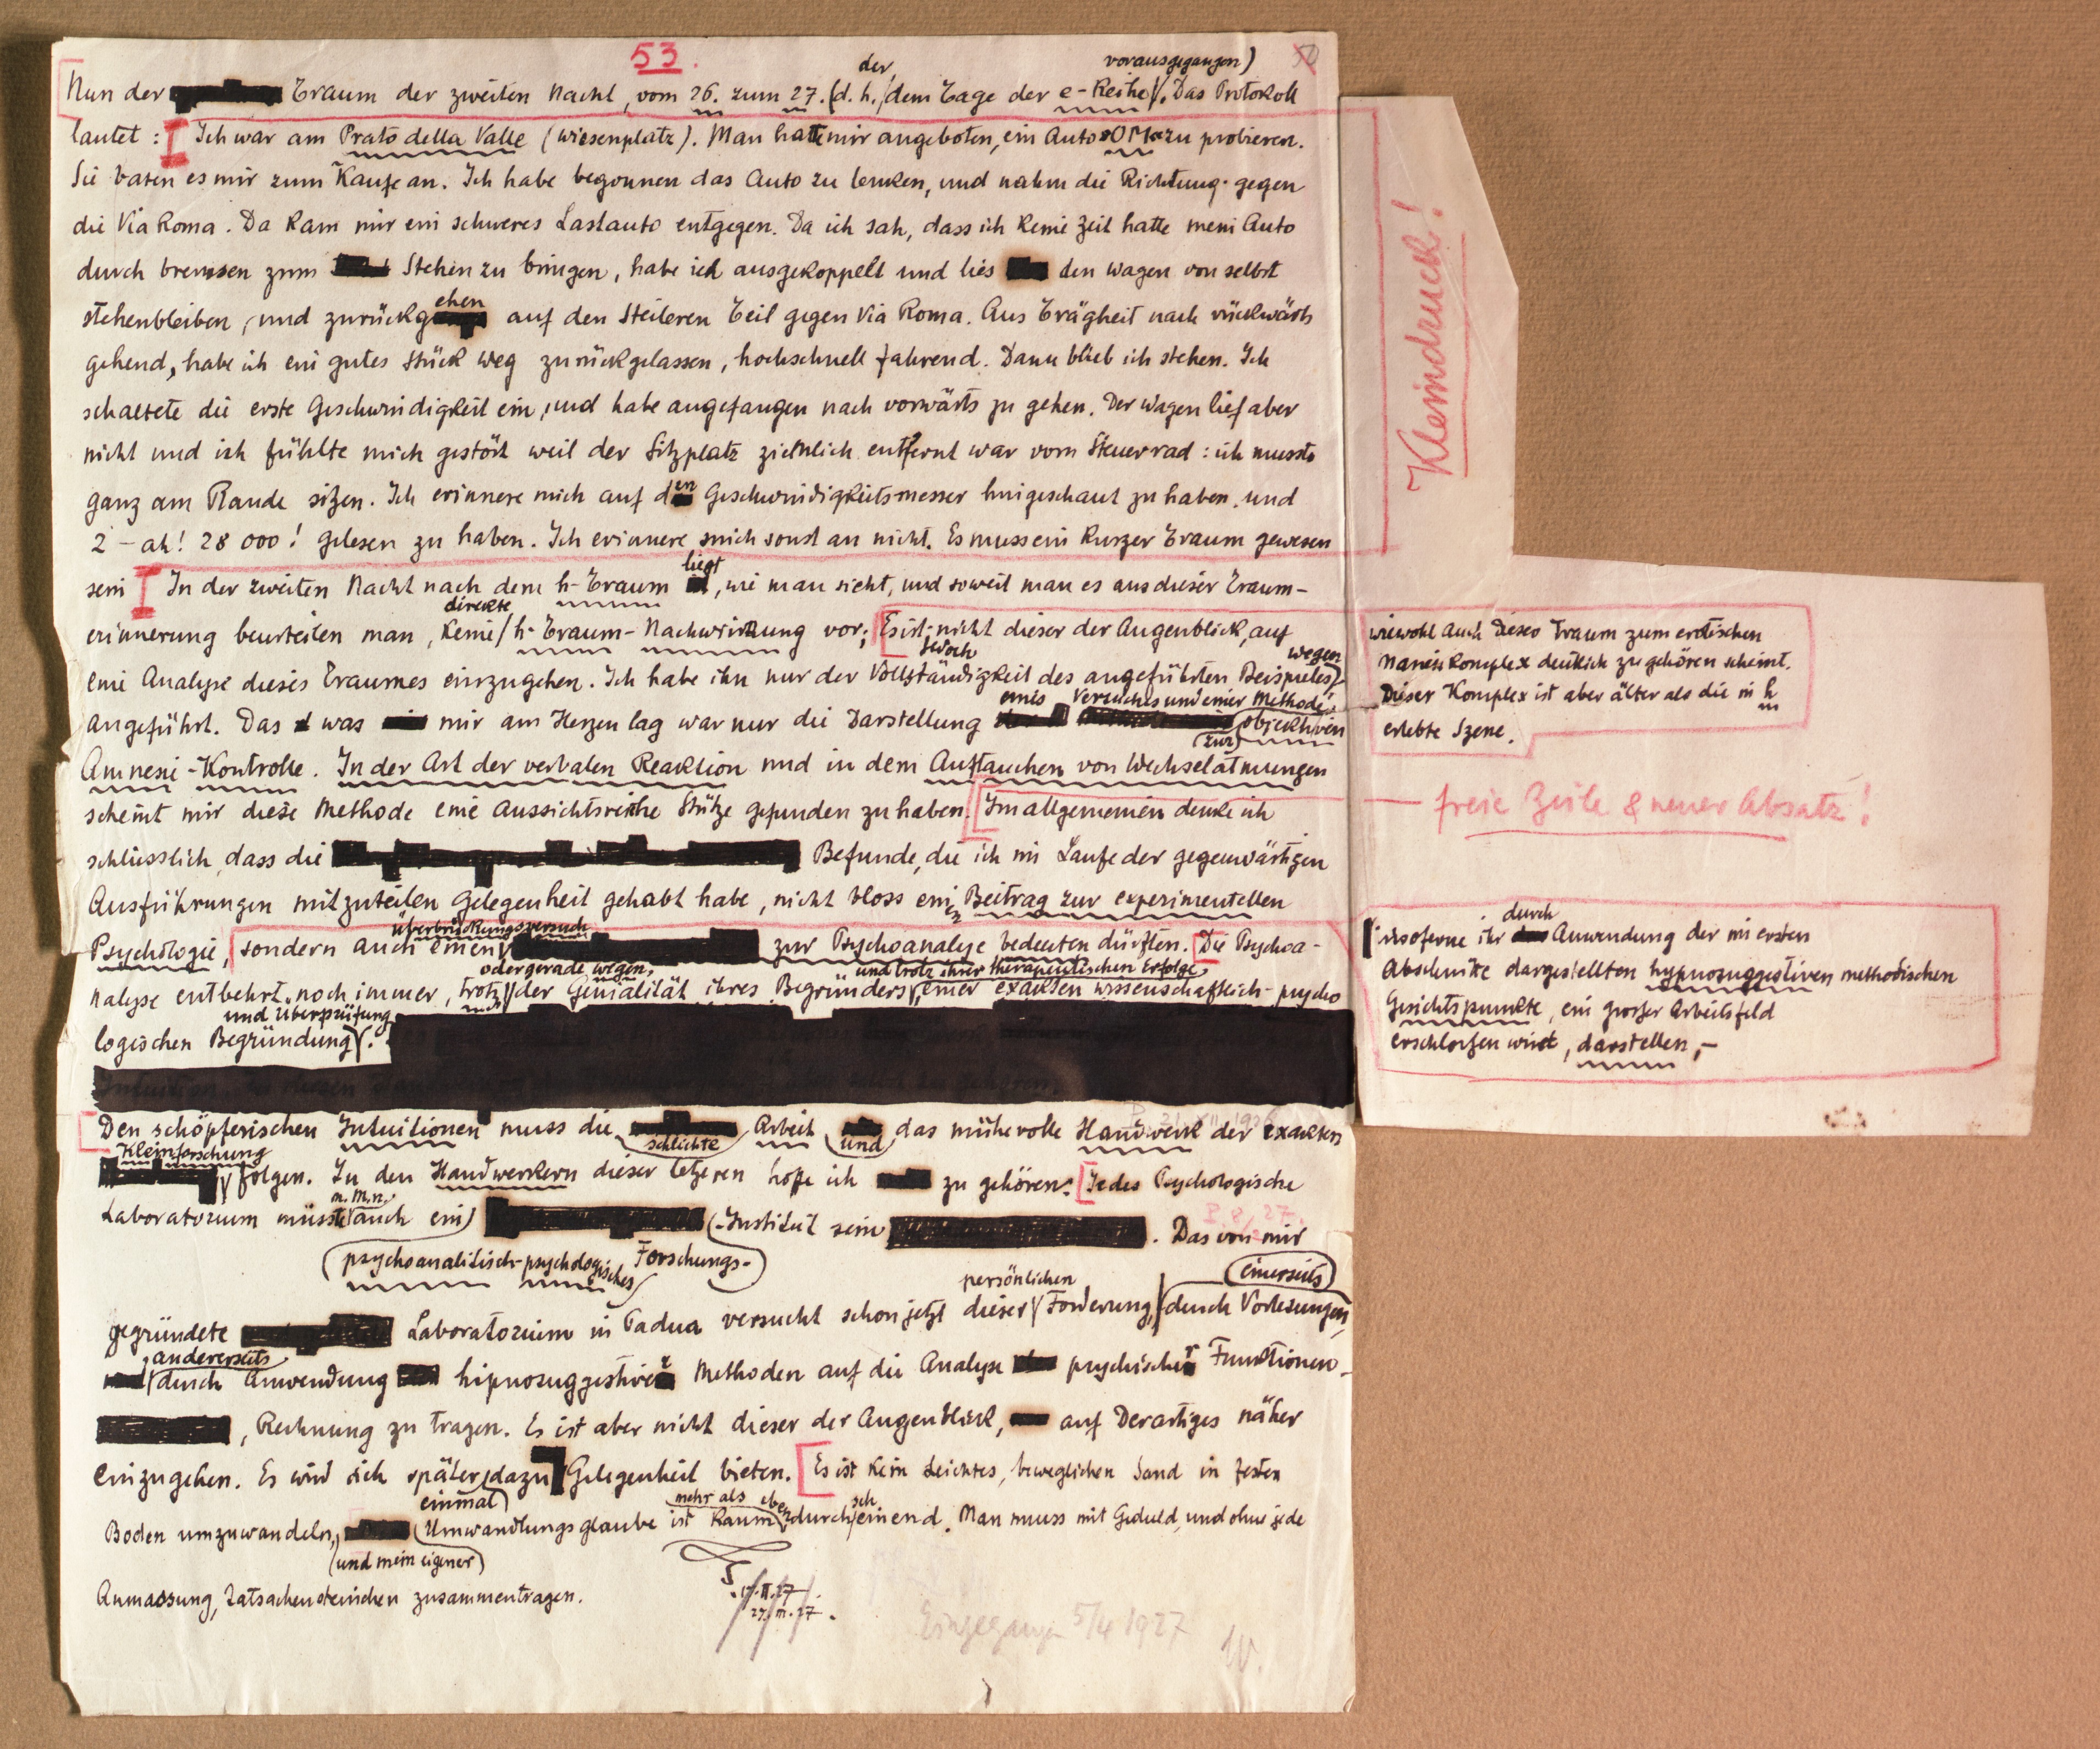 53.
50
der vorausgegangen)
Nun der Traum der zweiten Nacht, vom 26. zum 27. (d. h., dem Tage der e-Reihe). Das Protokoll
lautet : Ich war am Prato della Valle (Wiesenplatz). Man hatte mir angeboten, ein Auto »OM« zu probieren.
Sie baten es mir zum Kaufe an. Ich habe begonnen das Auto zu lenken, und nahm die Richtung gegen
die Via Roma. Da kam mir ein schweres Lastauto entgegen. Da ich sah, dass ich keine Zeit hatte mein Auto
durch bremsen zum Stehen zu bringen, habe ich ausgekoppelt und lies den Wagen von selbst
ehen
stehenbleiben, und zurückg auf den steileren Teil gegen Via Roma. Aus Trägheit nach rückwärts
gehend, habe ich ein gutes Stück Weg zurückgelassen, hochschnell fahrend. Dann blieb ich stehen. Ich
schaltete die erste Geschwindigkeit ein, und habe angefangen nach vorwärts zu gehen. Der Wagen lief aber
nicht und ich fühlte mich gestört weil der Sitzplatz ziemlich entfernt war vom Steuerrad : ich musste
ganz am Rande sitzen. Ich erinnere mich auf den Geschwindigkeitsmesser hingeschaut zu haben, und
2 - ah! 28 000! gelesen zu haben. Ich erinnere mich sonst an nicht. Es muss ein kurzer Traum gewesen
liegt
sein In der zweiten Nacht nach dem h-Traum , wie man sieht, und soweit man es aus dieser Traum-
direkte
erinnerung beurteilen man, keine h-Traum-Nachwirkung vor; Es ist nicht dieser der Augenblick, auf
jedoch wegen
eine Analyse dieses Traumes einzugehen. Ich habe ihn nur der Vollständigkeit des angeführten Beispieles
eines Versuches und einer Methode
angeführt. Das was mir am Herzen lag war nur die Darstellung objektiven
(zur)
Amnesie-Kontrolle. In der Art der verbalen Reaktion und in dem Auftauchen von Wechselatmungen
scheint mir diese Methode eine aussichtsreiche Stütze gefunden zu haben. Im allgemeinen denke ich
schliesslich, dass die Befunde, die ich im Laufe der gegenwärtigen
Ausführungen mitzuteilen Gelegenheit gehabt habe, nicht bloss einen Beitrag zur experimentellen
überbrückungsversuch
Psychologie, sondern auch einen zur Psychoanalyse bedeuten dürften. Die Psychoa-
oder gerade wegen, und trotz ihrer therapeutischen Erfolge
nalyse entbehrt noch immer, trotz der Genialität ihres Begründers, einer exakten wissenschaftlich-psycho
und Überprüfung
logischen Begründung.
Den schöpferischen Intuitionen muss die schlichte Arbeit und das mühevolle Handwerk der exakten
Kleinforschung
folgen. Zu den Handwerkern dieser letzeren hoffe ich zu gehören. Jedes Psychologische
m. M. n.
Laboratorium müsste auch ein -Institut sein . Das von mir
(psychoanalitisch-psychologisches Forschungs-)
persönlichen (einerseits)
gegründete Laboratorium in Padua versucht schon jetzt dieser Forderung, durch Vorlesungen,
andererseits
durch Anwendung hipnosuggestiver Methoden auf die Analyse psychischer Funktionen
, Rechnung zu tragen. Es ist aber nicht dieser der Augenblick, auf Derartiges näher
einzugehen. Es wird sich später dazu Gelegenheit bieten. Es ist kein Leichtes, beweglichen Sand in festen
einmal mehr als eben sch
Boden umzuwandeln, Umwandlungsglaube ist kaum durch einend. Man muss mit Geduld, und ohne jede
(und mein eigener)
Anmassung, Tatsachensteinchen zusammentragen.
Eingegangen 5/4 1927
Kleindruck!
wiewohl auch dieser Traum zum erotischen
Komplex deutlich zu gehören scheint.
Dieser Komplex ist aber älter als die in h
erlebte Szene.
freie Zeile & neuer Absatz!
durch
insoferne ihr Anwendung der im ersten
Abschnitte dargestellten hypnosuggestiven methodischen
Gesichtspunkte, ein grosser Arbeitsfeld
erschlossen wird, darstellen,-